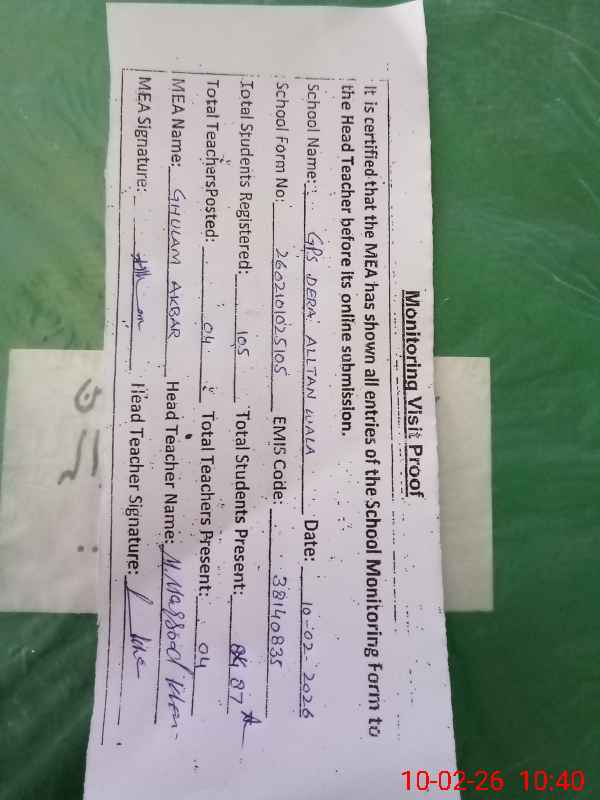 Monitoring Visit Proof
It is certified that the MEA has shown all entries of the School Monitoring Form to
the Head Teacher before its online submission.
School Name: GPS DERA ALLTAN WALA Date: 10-02-2026
School Form No: 2602101025105 EMIS Code: 38140835
Total Students Registered: 105 Total Students Present: 87
Total TeachersPosted: 04 Total Teachers Present: 04
MEA Name: GHULAM AKBAR Head Teacher Name: M. Maqsood Khan
MEA Signature: Head Teacher Signature:
10-02-26 10:40